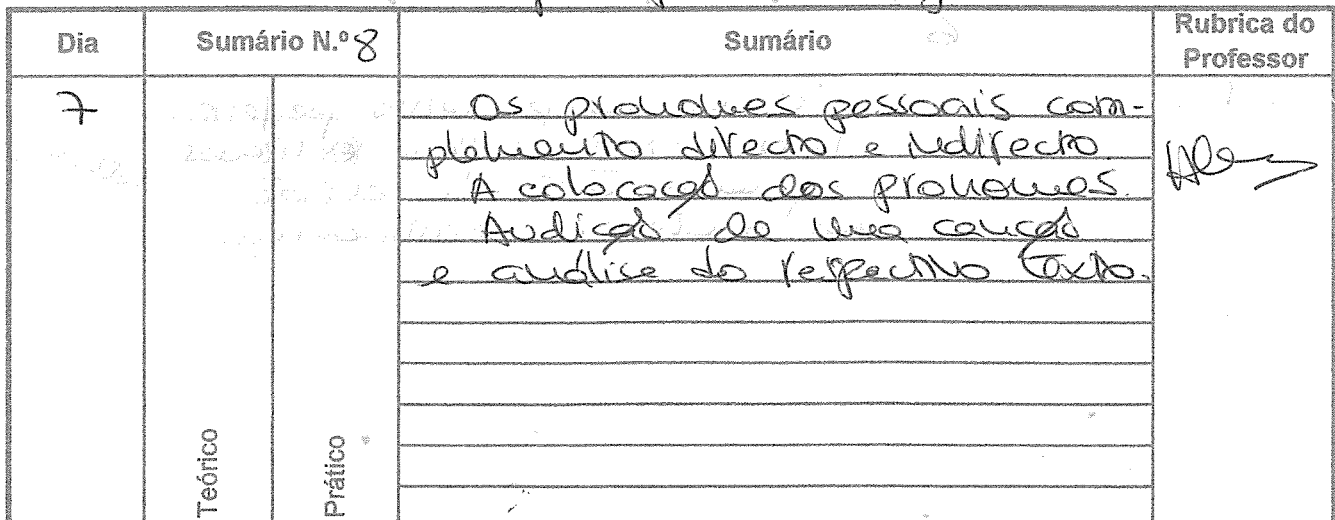 Dia
Sumário N.º 8
Sumário
Rubrica do
Professor
7
Os pronomes pessoais com-
plemento directo e indirecto.
A colocação dos pronomes.
Audição de uma canção
e análise do respectivo texto.
Teórico
Prático